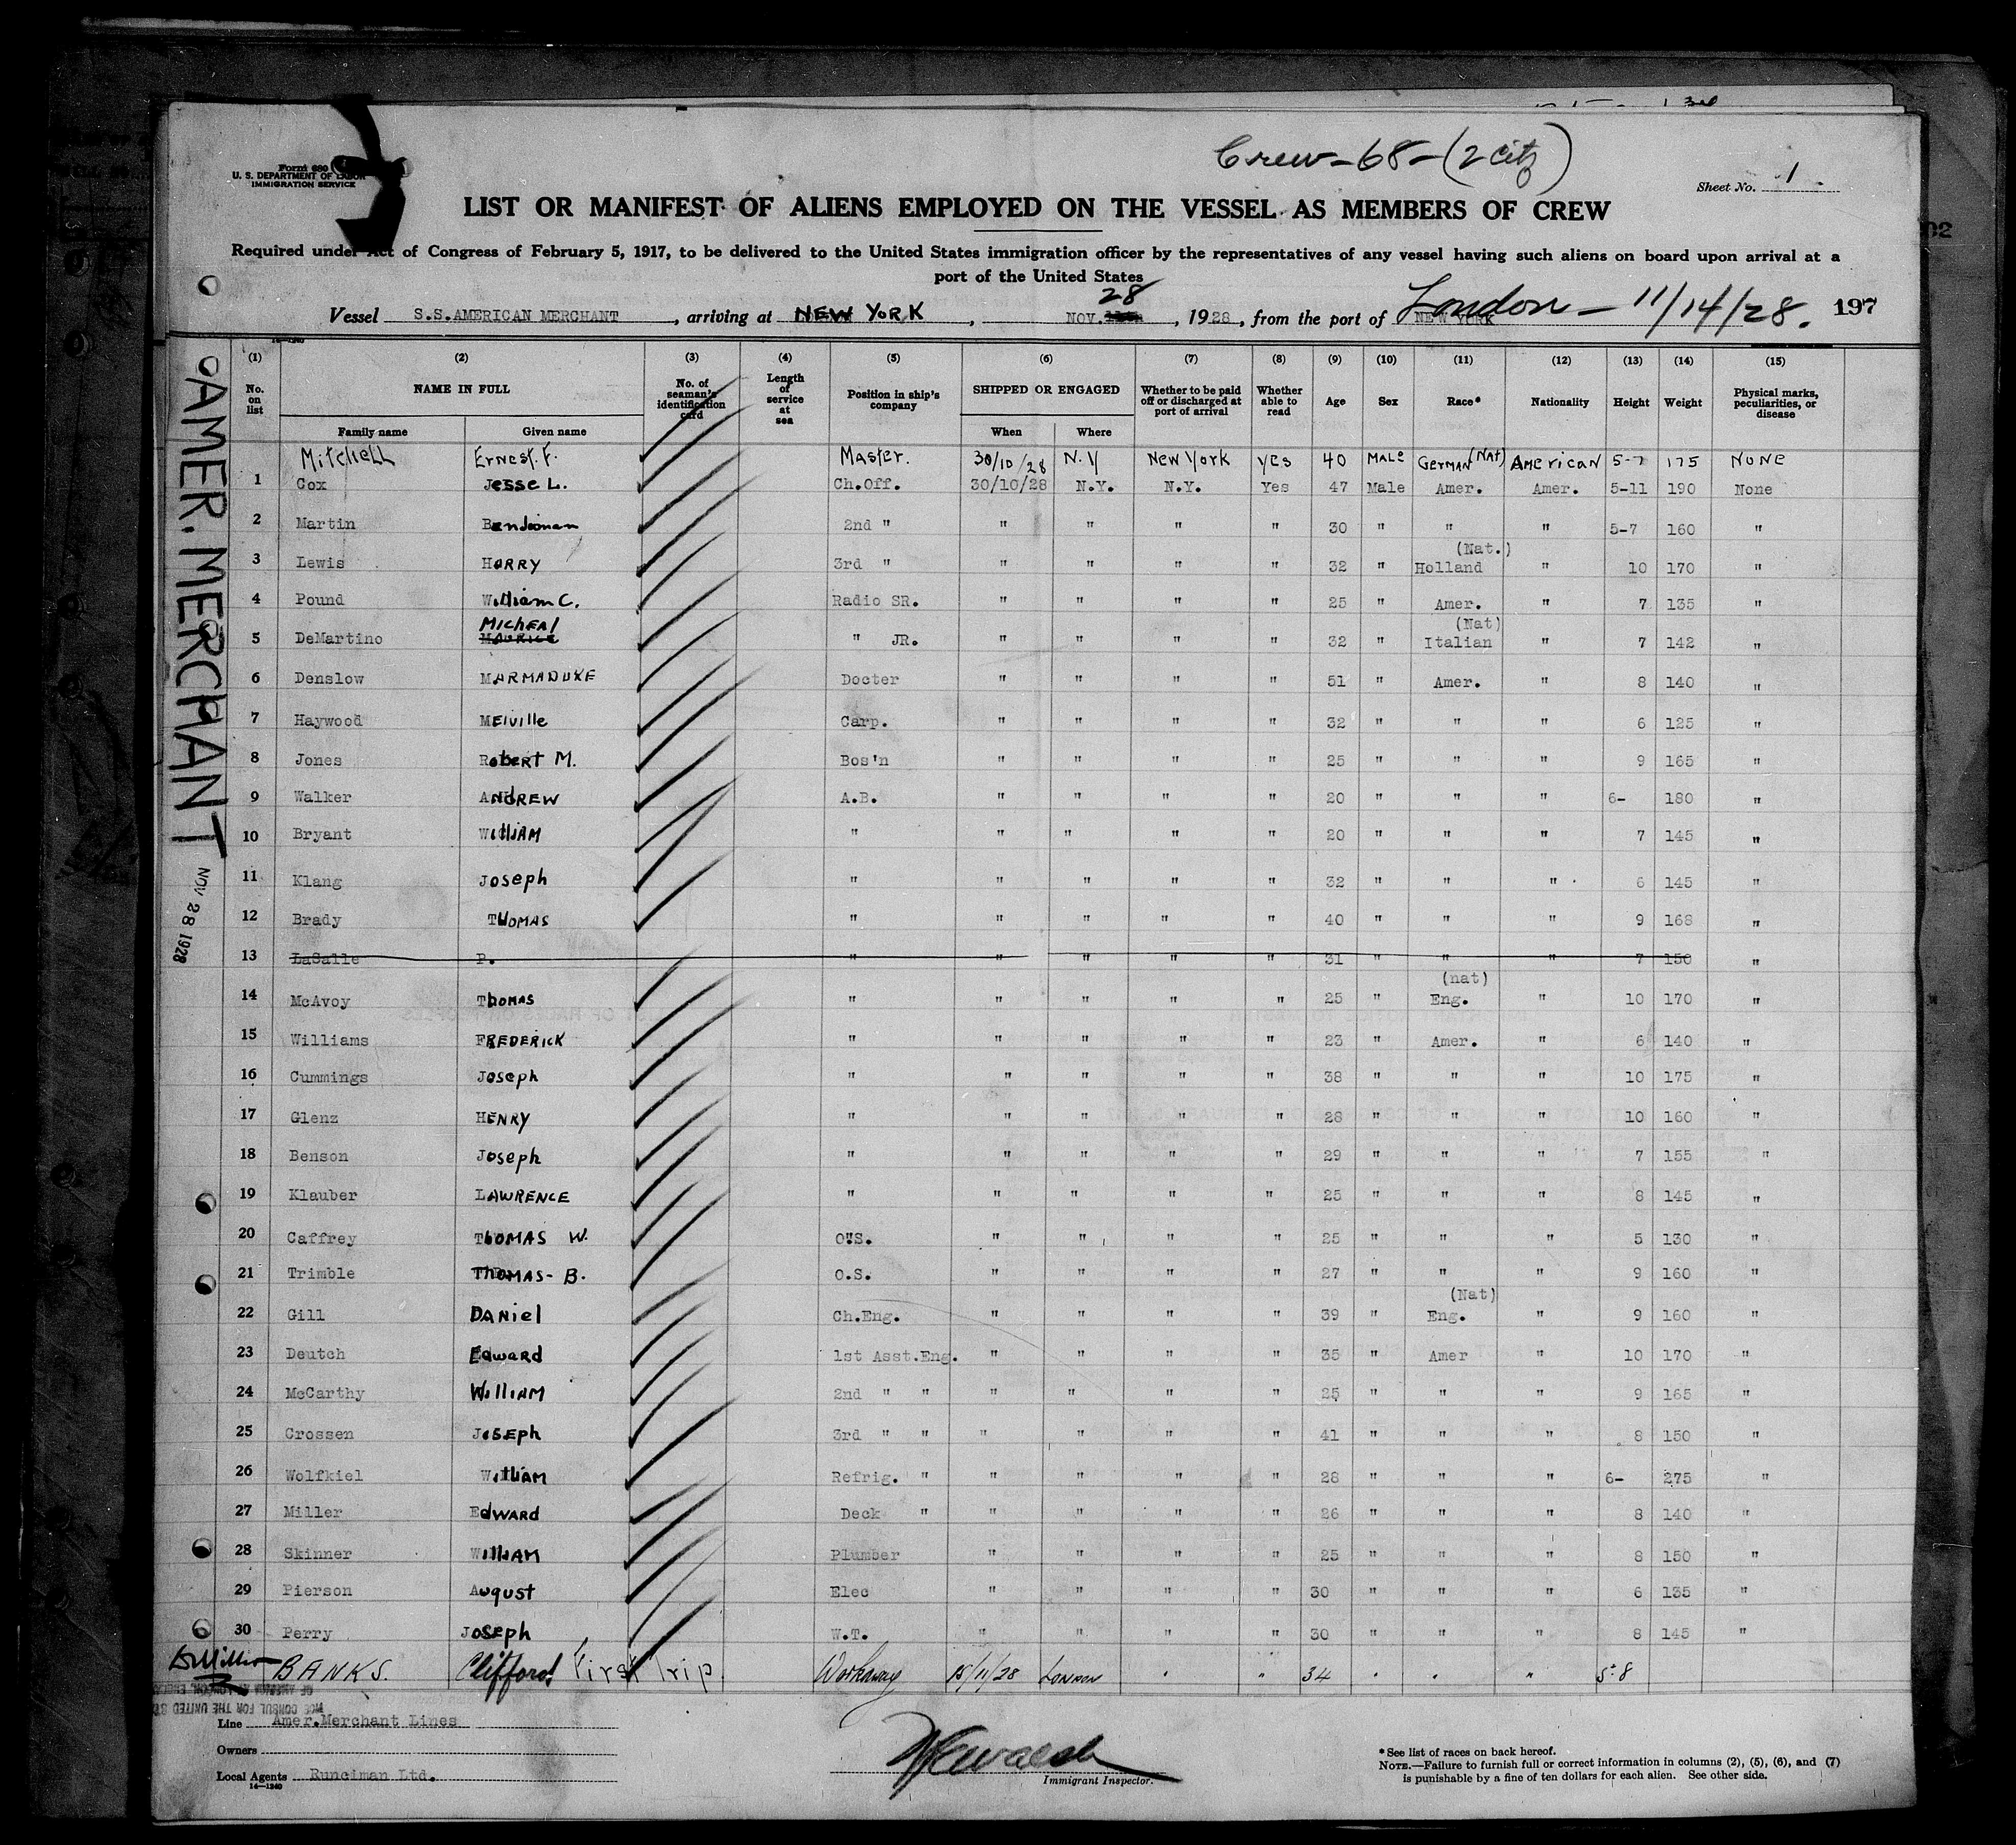 Crew - 68 - (2 Citz)
Form 680
U. S. DEPARTMENT OF LABOR
IMMIGRATION SERVICE
Sheet No. 1.
LIST OR MANIFEST OF ALIENS EMPLOYED ON THE VESSEL AS MEMBERS OF CREW
Required under Act of Congress of February 5, 1917, to be delivered to the United States immigration officer by the representatives of any vessel having such aliens on board upon arrival at a
port of the United States
Vessel S.S.AMERICAN MERCHANT, arriving at NEW YORK, NOV. 28, 1928, from the port of NEW YORK London - 11/14/28. 197
(1) (2) (3) (4) (5) (6) (7) (8) (9) (10) (11) (12) (13) (14) (15)
No. on list NAME IN FULL Family name Given name No. of seaman's identification card Length of service at sea Position in ship's company SHIPPED OR ENGAGED When Where Whether to be paid off or discharged at port of arrival Whether able to read Age Sex Race* Nationality Height Weight Physical marks, peculiarities, or disease
Mitchell Ernest. F. Master. 30/10/28 N.Y New York yes 40 Male German (Nat) American 5-7 175 None
1 Cox Jesse L. Ch.Off. 30/10/28 N.Y. N.Y. Yes 47 Male Amer. Amer. 5-11 190 None
2 Martin 2nd " " " " " 30 " " " 5-7 160 "
3 Lewis HARRY 3rd " " " " " 32 " (Nat.) Holland " 10 170 "
4 Pound William C. Radio SR. " " " " 25 " Amer. " 7 135 "
5 DeMartino MAURICE Micheal " JR. " " " " 32 " (Nat) Italian " 7 142 "
6 Denslow MARMADUKE Docter " " " " 51 " Amer. " 8 140 "
7 Haywood MElville Carp. " " " " 32 " " " 6 125 "
8 Jones RobERT M. Bos'n " " " " 25 " " " 9 165 "
9 Walker ANDREW A.B. " " " " 20 " " " 6- 180 "
10 Bryant WilliAM " " " " " 20 " " " 7 145 "
11 Klang Joseph " " " " " 32 " " " 6 145 "
12 Brady THOMAS " " " " " 40 " " " 9 168 "
13 LaSalle P. " " " " " 31 " " " 7 150 "
14 McAvoy ThOMAS " " " " " 25 " (nat) Eng. " 10 170 "
15 Williams FREDERICK " " " " " 23 " Amer. " 6 140 "
16 Cummings Joseph " " " " " 38 " " " 10 175 "
17 Glenz HENRY " " " " " 28 " " " 10 160 "
18 Benson Joseph " " " " " 29 " " " 7 155 "
19 Klauber LAWRENCE " " " " " 25 " " " 8 145 "
20 Caffrey ThOMAS W. O.S. " " " " 25 " " " 5 130 "
21 Trimble ThOMAS- B. O.S. " " " " 27 " " " 9 160 "
22 Gill DANiel Ch.Eng. " " " " 39 " (Nat) Eng. " 9 160 "
23 Deutch Edward 1st Asst.Eng. " " " " 35 " Amer " 10 170 "
24 McCarthy WilliAM 2nd " " " " " " 25 " " " 9 165 "
25 Crossen JoSEph 3rd " " " " " " 41 " " " 8 150 "
26 Wolfkiel WilliAM Refrig. " " " " " 28 " " " 6- 275 "
27 Miller EdWARD Deck " " " " " 26 " " " 8 140 "
28 Skinner WilliAM Plumber " " " " 25 " " " 8 150 "
29 Pierson August Elec " " " " 30 " " " 6 135 "
30 Perry JOSEph W.T. " " " " 30 " " " 8 145 "
BANKS. Clifford First Trip. Workaway 15/11/28 London " " 34 " " " 5-8
AMER. MERCHANT
NOV 28 1928
VICE CONSUL FOR THE UNITED
Line Amer.Merchant Lines
Owners
Local Agents Runciman Ltd.
14-1240
Immigrant Inspector.
* See list of races on back hereof.
NOTE.—Failure to furnish full or correct information in columns (2), (5), (6), and (7)
is punishable by a fine of ten dollars for each alien. See other side.